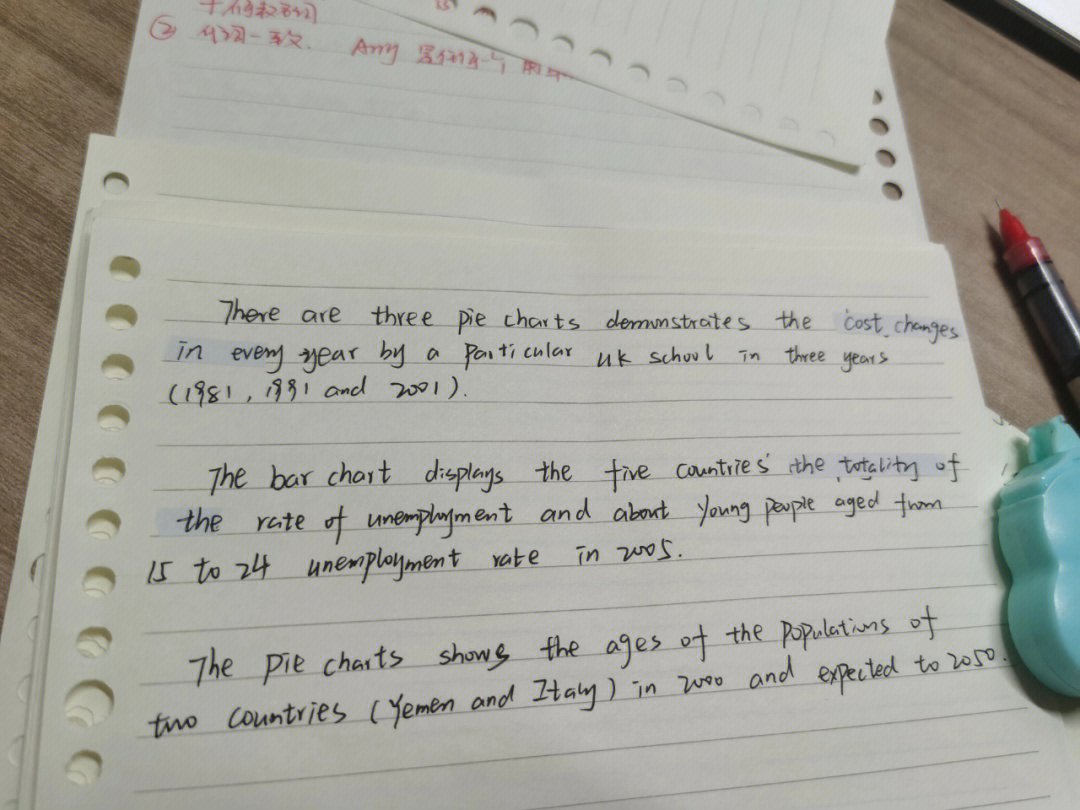 ② 代词一致. Any
There are three pie charts demonstrates the cost changes
in every year by a particular uk school in three years
(1981, 1991 and 2001).
The bar chart displays the five countries' the totality of
the rate of unemployment and about young people aged from
15 to 24 unemployment rate in 2005.
The pie charts shows the ages of the populations of
two countries (Yemen and Italy) in 2000 and expected to 2050.